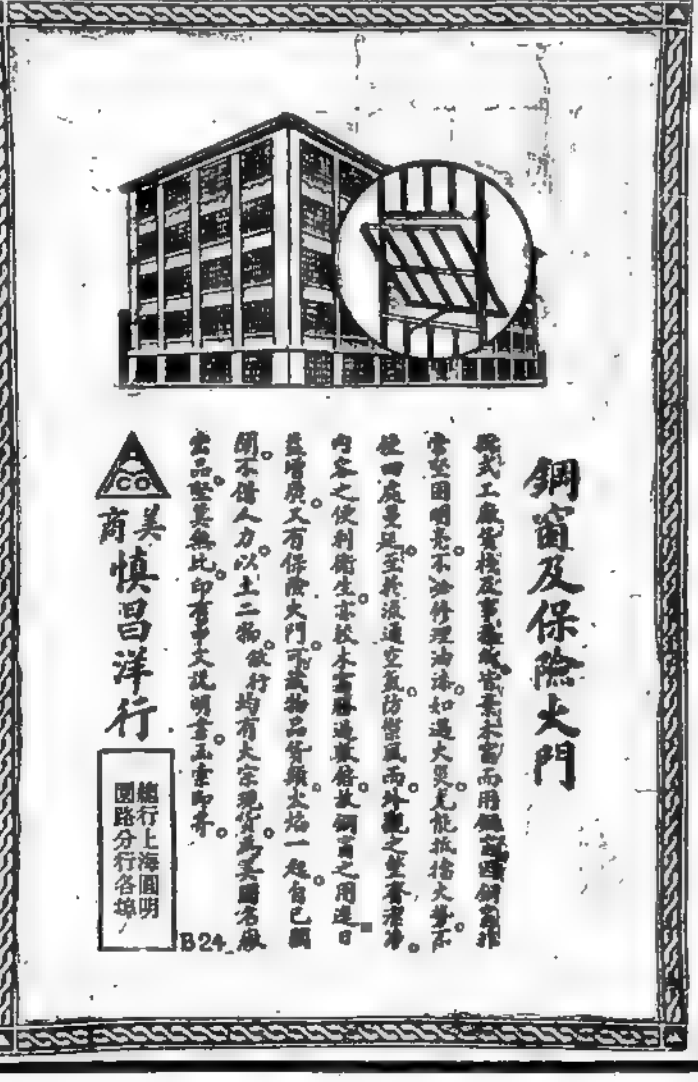 鋼窗及保險火門
新式工廠貨棧及事務 棄木窗而用鋼窗因鋼窗非
常堅固明亮不必修理油漆如遇火災尤能抵擋火勢不
使四處蔓延至於流通空氣防禦風雨外觀之整齊潔淨
內容之便利衛生亦較木窗勝過數倍故鋼窗之用途日
益增廣又有保險火門可藏物品貨類火焰一起自己關
閉不借人力以上二物敝行均有大宗現貨為美國名廠
出品堅美無比印有中文說明書函索即寄
美商
慎昌洋行
總行上海圓明
園路分行各埠
B24